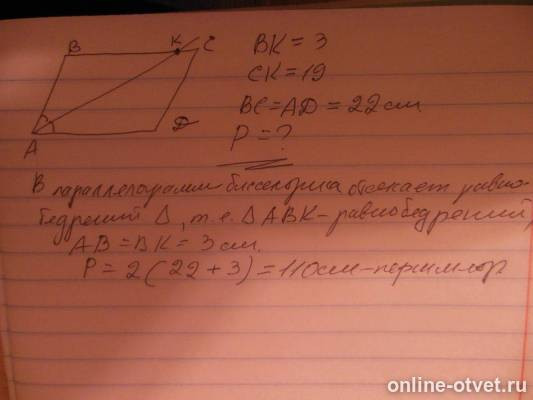 B K C
A D
BK = 3
CK = 19
BC = AD = 22 см
P = ?
В параллелограмм биссектриса отсекает равно-
бедрений Δ, т.е. Δ ABK - равнобедрений,
AB = BK = 3 см.
P = 2 ( 22 + 3 ) = 110 см - периметр
online-otvet.ru